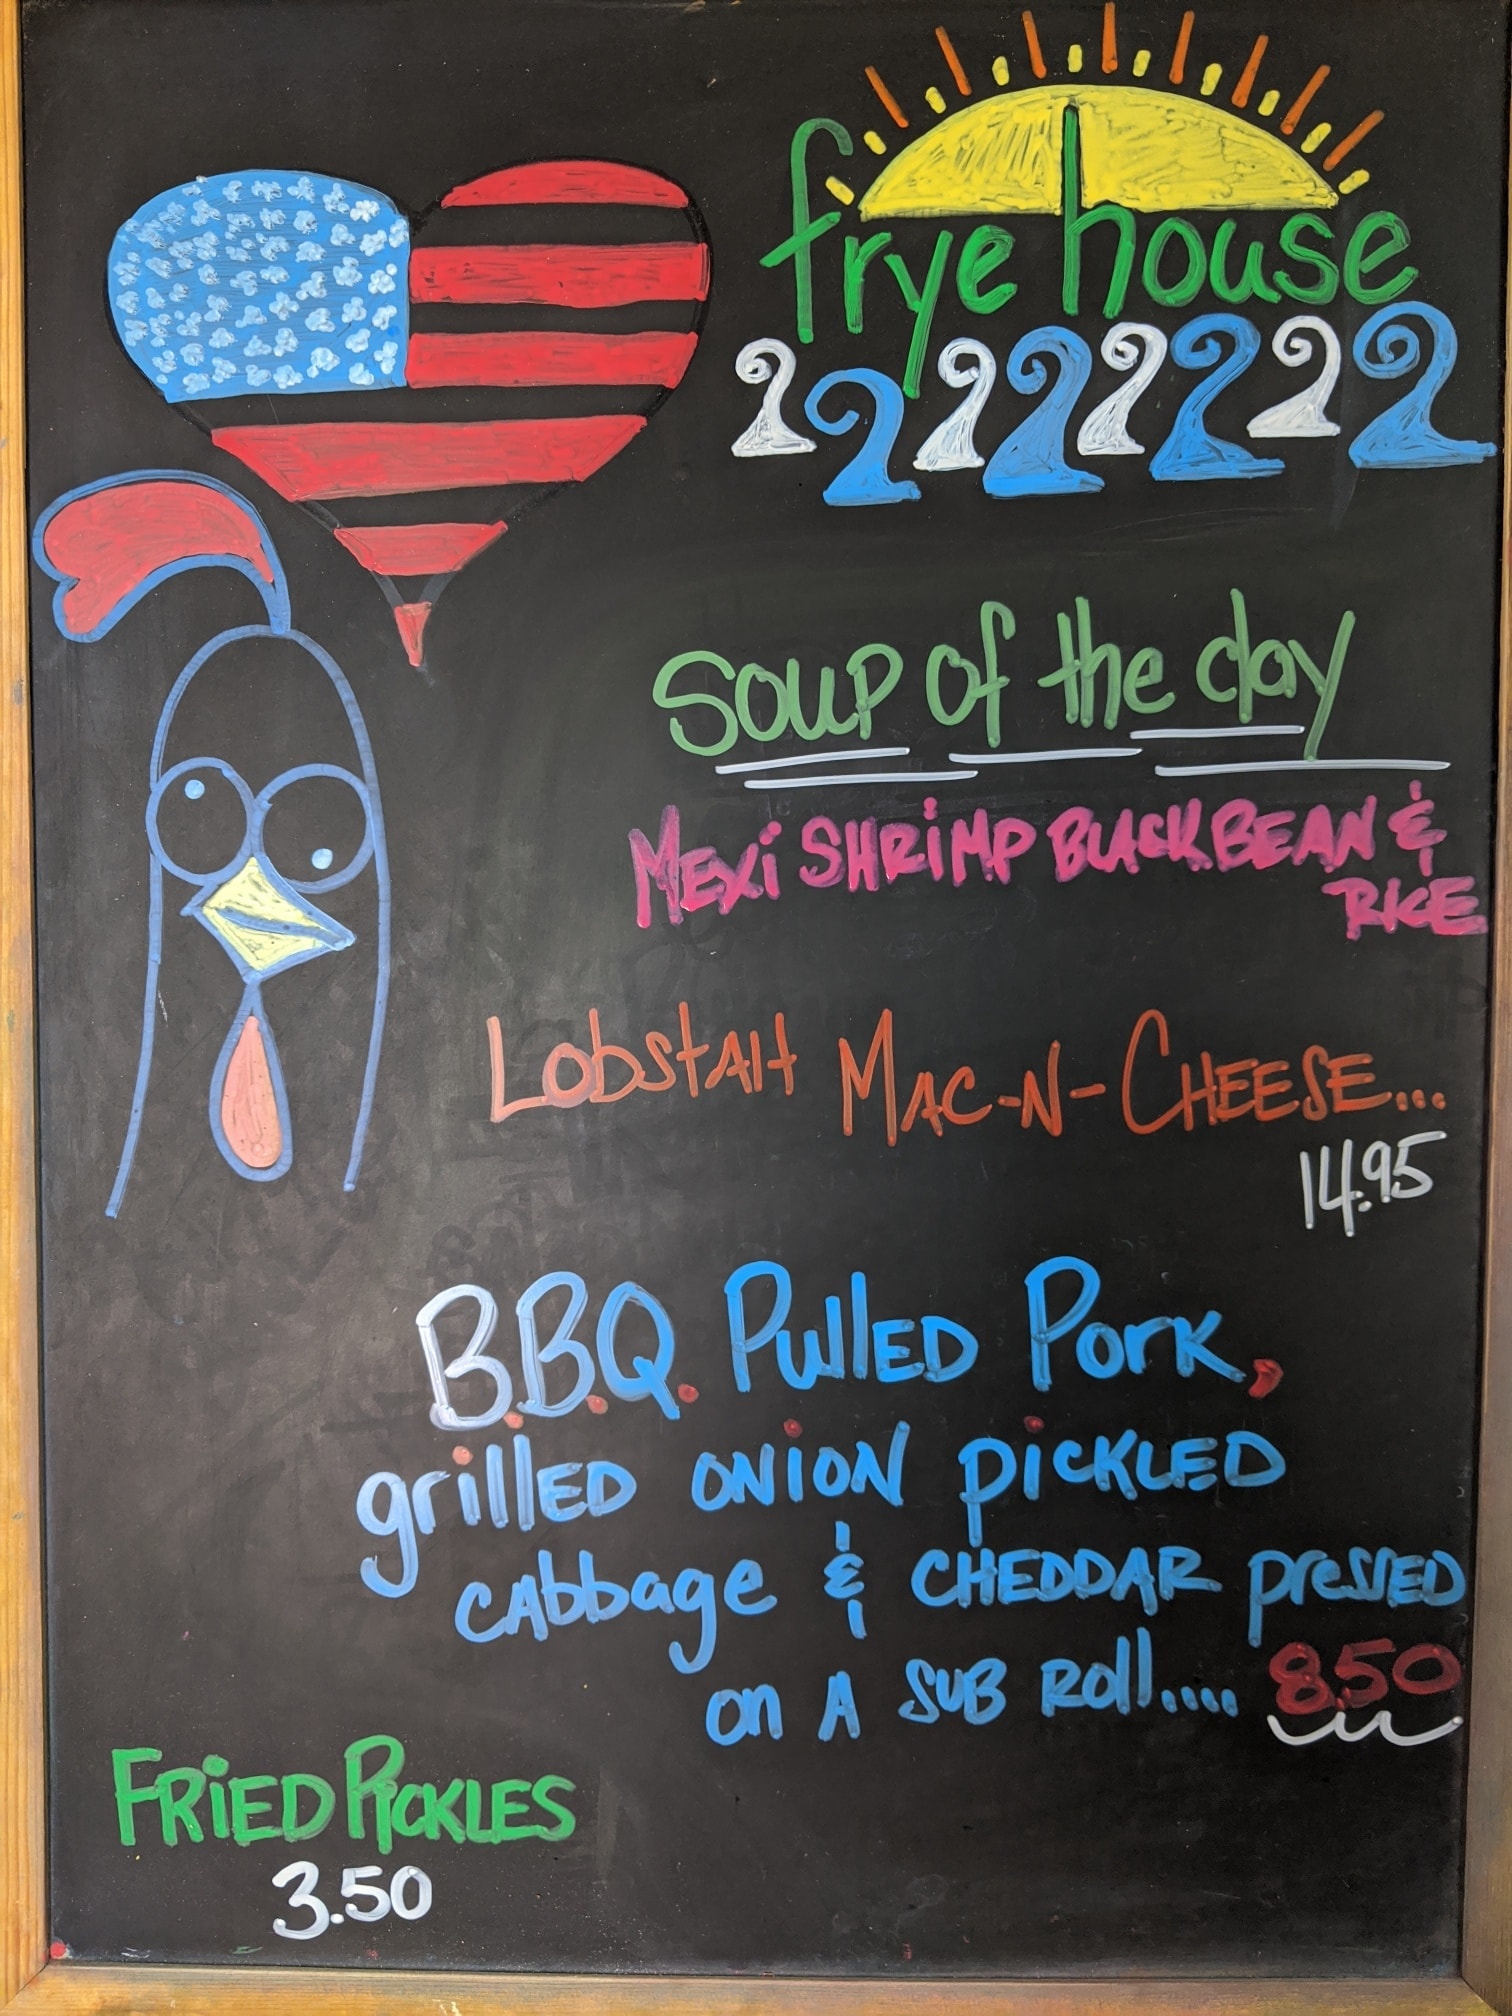 frye house
Soup of the day
MEXi SHRiMP BLACK BEAN &
RICE
LObSTAH MAC-N-CHEESE...
14.95
B.B.Q. PullED PorK,
grillED ONiON PiCKLED
CAbbage & CHEDDAR pressED
on A SUB Roll.... 8.50
FRiED PiCKLES
3.50